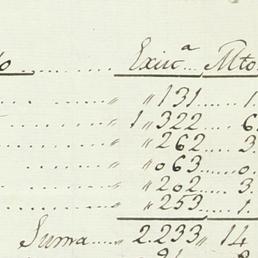 o .......... Exiu.ª .. Mto
.... .... " " 131 ..... 1.
.... .... " 1 " 322 ..... 6
.... .... " " 262 .... 3.
.... .... " " 063 ..... 0.
.... .... " " 202 ... 3.
.... .... " " 253 ..... 1.
Suma .... " 2.233 " 14